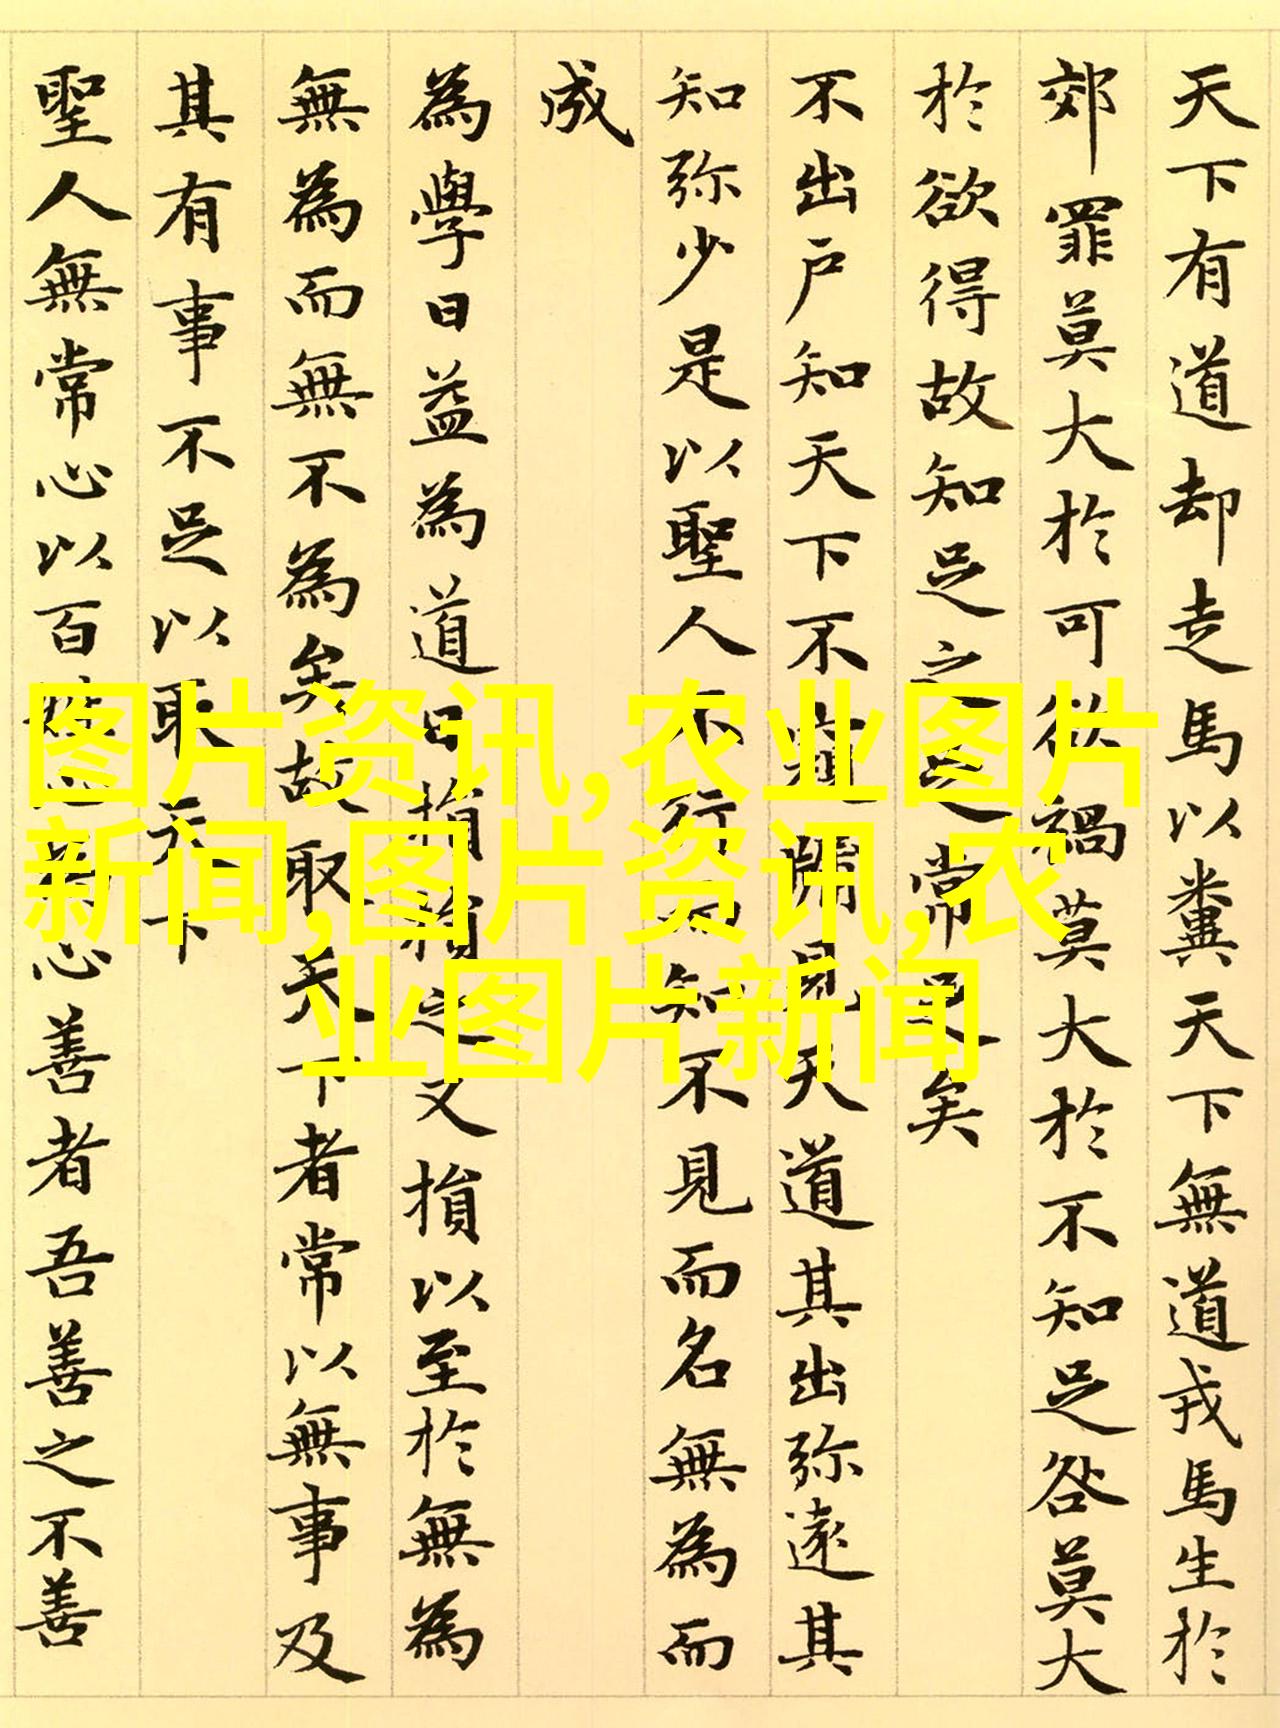 天下有道却走馬以糞天下無道戎馬生於
郊罪莫大於可欲禍莫大於不知足咎莫大
於欲得故知足之足常足矣
不出戶知天下不窺牖見天道其出弥遠其
知弥少是以聖人不行而知不見而名無為而
成
為學日益為道日損損之又損以至於無為
無為而無不為矣故取天下者常以無事及
其有事不足以取天下
聖人無常心以百姓心為心善者吾善之不善
图片资讯,农业图片
新闻,图片资讯,农
业图片新闻